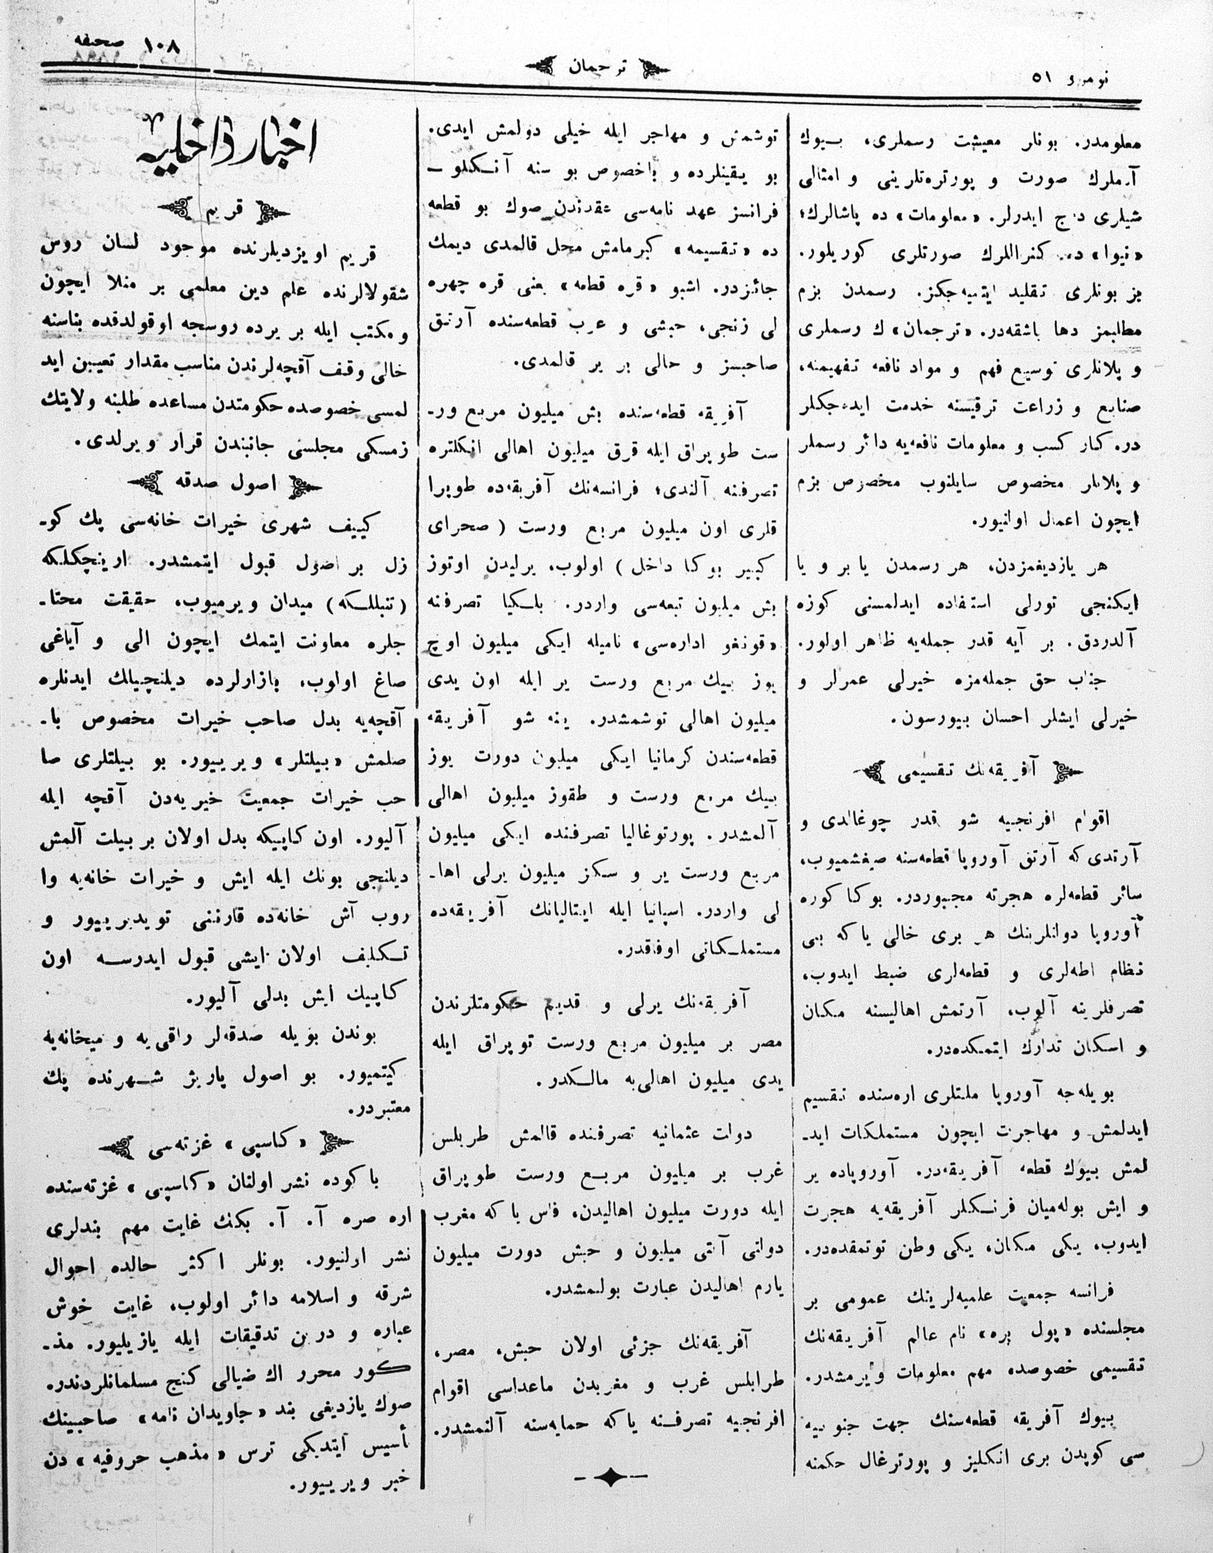 نومرو ٥١
ترجمان
١٠٨ صحیفه
معلومدر. بونلر معیشت رسملری، بیوك
آدملرك صورت و پورتره‌تلرینی و امثالی
شیلری درج ایدرلر. «معلومات» ده پاشالرك؛
«نیوا» ده کنراللرك صورتلری کوریلور.
بز بونلری تقلید ایتمیه‌جکز. رسمدن بزم
مطلبمز دها باشقه‌در. «ترجمان» ك رسملری
و پلانلری توسیع فهم و مواد نافعه تفهیمنه،
صنایع و زراعت ترقیسنه خدمت ایده‌جکلر
در. کار کسب و معلومات نافعه‌یه دائر رسملر
و پلانلر مخصوص سایلنوب مخصوص بزم
ایچون اعمال اولنیور.
هر یازدیغمزدن، هر رسمدن یا بر و یا
ایکنجی تورلی استفاده ایدلمسنی کوزه
آلدردق. بر آیه قدر جمله‌یه ظاهر اولور.
جناب حق جمله‌مزه خیرلی عمرلر و
خیرلی ایشلر احسان بیورسون.
آفریقه‌نك تقسیمی
اقوام افرنجیه شو قدر چوغالدی و
آرتدی که آرتق آوروپا قطعه‌سنه صیغشمیوب،
سائر قطعه‌لره هجرته مجبوردر. بوکا کوره
آوروپا دولتلرینك هر بری خالی یاکه بی
نظام اطه‌لری و قطعه‌لری ضبط ایدوب،
تصرفلرینه آلوب، آرتمش اهالیسنه مکان
و اسکان تدارك ایتمکده‌در.
بویله‌جه آوروپا ملتلری اره‌سنده تقسیم
ایدلمش و مهاجرت ایچون مستملکات ایدـ
لمش بیوك قطعه آفریقه‌در. آوروپاده یر
و ایش بوله‌میان فرنکلر آفریقه‌یه هجرت
ایدوب، یکی مکان، یکی وطن توتمقده‌در.
فرانسه جمعیت علمیه‌لرینك عمومی بر
مجلسنده «پول بره» نام عالم آفریقه‌نك
تقسیمی خصوصده مهم معلومات ویرمشدر.
بیوك آفریقه قطعه‌سنك جهت جنوبیه
سی کوپدن بری انکلیز و پورترغال حکمنه
توشمش و مهاجر ایله خیلی دولمش ایدی.
بو یقینلرده و باخصوص بو سنه آنکلو ـ
فرانسز عهد نامه‌سی عقدندن صوك بو قطعه
ده «تقسیمه» کیرمامش محل قالمدی دیمك
جائزدر. اشبو «قره قطعه» یعنی قره چهره
لی زنجی، حبشی و عرب قطعه‌سنده آرتق
صاحبسز و خالی بر یر قالمدی.
آفریقه قطعه‌سنده بش میلیون مربع ورـ
ست طوپراق ایله قرق میلیون اهالی انکلتره
تصرفنه آلندی؛ فرانسه‌نك آفریقه‌ده طوپرا
قلری اون میلیون مربع ورست (صحرای
کبیر بوکا داخل) اولوب، یرلیدن اوتوز
بش میلیون تبعه‌سی واردر. بلکیا تصرفنه
«قونغو اداره‌سی» نامیله ایکی میلیون اوچ
یوز بیك مربع ورست یر ایله اون یدی
میلیون اهالی توشمشدر. ینه شو آفریقه
قطعه‌سندن کرمانیا ایکی میلیون دورت یوز
بیك مربع ورست و طقوز میلیون اهالی
آلمشدر. پورتوغالیا تصرفنده ایکی میلیون
مربع ورست یر و سکز میلیون یرلی اهاـ
لی واردر. اسپانیا ایله ایتالیانك آفریقه‌ده
مستملکانی اوفاقدر.
آفریقه‌نك یرلی و قدیم حکومتلرندن
مصر بر میلیون مربع ورست توپراق ایله
یدی میلیون اهالی‌یه مالکدر.
دولت عثمانیه تصرفنده قالمش طربلس
غرب بر میلیون مربع ورست طوپراق
ایله دورت میلیون اهالیدن، فاس یاکه مغرب
دولتی آلتی میلیون و حبش دورت میلیون
یارم اهالیدن عبارت بولمشدر.
آفریقه‌نك جزئی اولان حبش، مصر،
طرابلس غرب و مغربدن ماعداسی اقوام
افرنجیه تصرفنه یاکه حمایه‌سنه آلنمشدر.
اخبار داخلیه
قریم
قریم اویزدیلرنده موجود لسان روس
شقولالرنده علم دین معلمی بر منلا ایچون
و مکتب ایله بر یرده روسجه اوقولدقده بناسنه
خالی وقف آقچه‌لرندن مناسب مقدار تعیین اید
لمسی خصوصده حکومتدن مساعده طلبنه ولایتك
زمسکی مجلسی جانبندن قرار ویرلدی.
اصول صدقه
کییف شهری خیرات خانه‌سی پك کوـ
زل بر اصول قبول ایتمشدر. ارینچکلکه
(تنبللکه) میدان ویرمیوب، حقیقت محتاـ
جلره معاونت ایتمك ایچون الی و آیاغی
صاغ اولوب، بازارلرده دیلنچیلك ایدنلره
آقچه‌یه بدل صاحب خیرات مخصوص باـ
صلمش «بیلتلر» ویرییور. بو بیلتلری صا
حب خیرات جمعیت خیریه‌دن آقچه ایله
آلیور. اون کاپیکه بدل اولان بر بیلت آلمش
دیلنجی بونك ایله ایش و خیرات خانه‌یه وا
روب آش خانه‌ده قارننی تویدیرییور و
تکلیف اولان ایشی قبول ایدرسه اون
کاپیك ایش بدلی آلیور.
بوندن بویله صدقه‌لر راقی‌یه و میخانه‌یه
کیتمیور. بو اصول پاریژ شهرنده پك
معتبردر.
«کاسپی» غزته‌سی
باکوده نشر اولنان «کاسپی» غزته‌سنده
اره صره آ. آ. بکك غایت مهم بندلری
نشر اولنیور. بونلر اکثر حالده احوال
شرقه و اسلامه دائر اولوب، غایت خوش
عباره و درین تدقیقات ایله یازیلیور. مذـ
کور محرر اك ضیالی کنج مسلمانلردندر.
صوك یازدیغی بند «جاویدان نامه» صاحبینك
تأسیس ایتدیکی ترس «مذهب حروفیه» دن
خبر ویرییور.